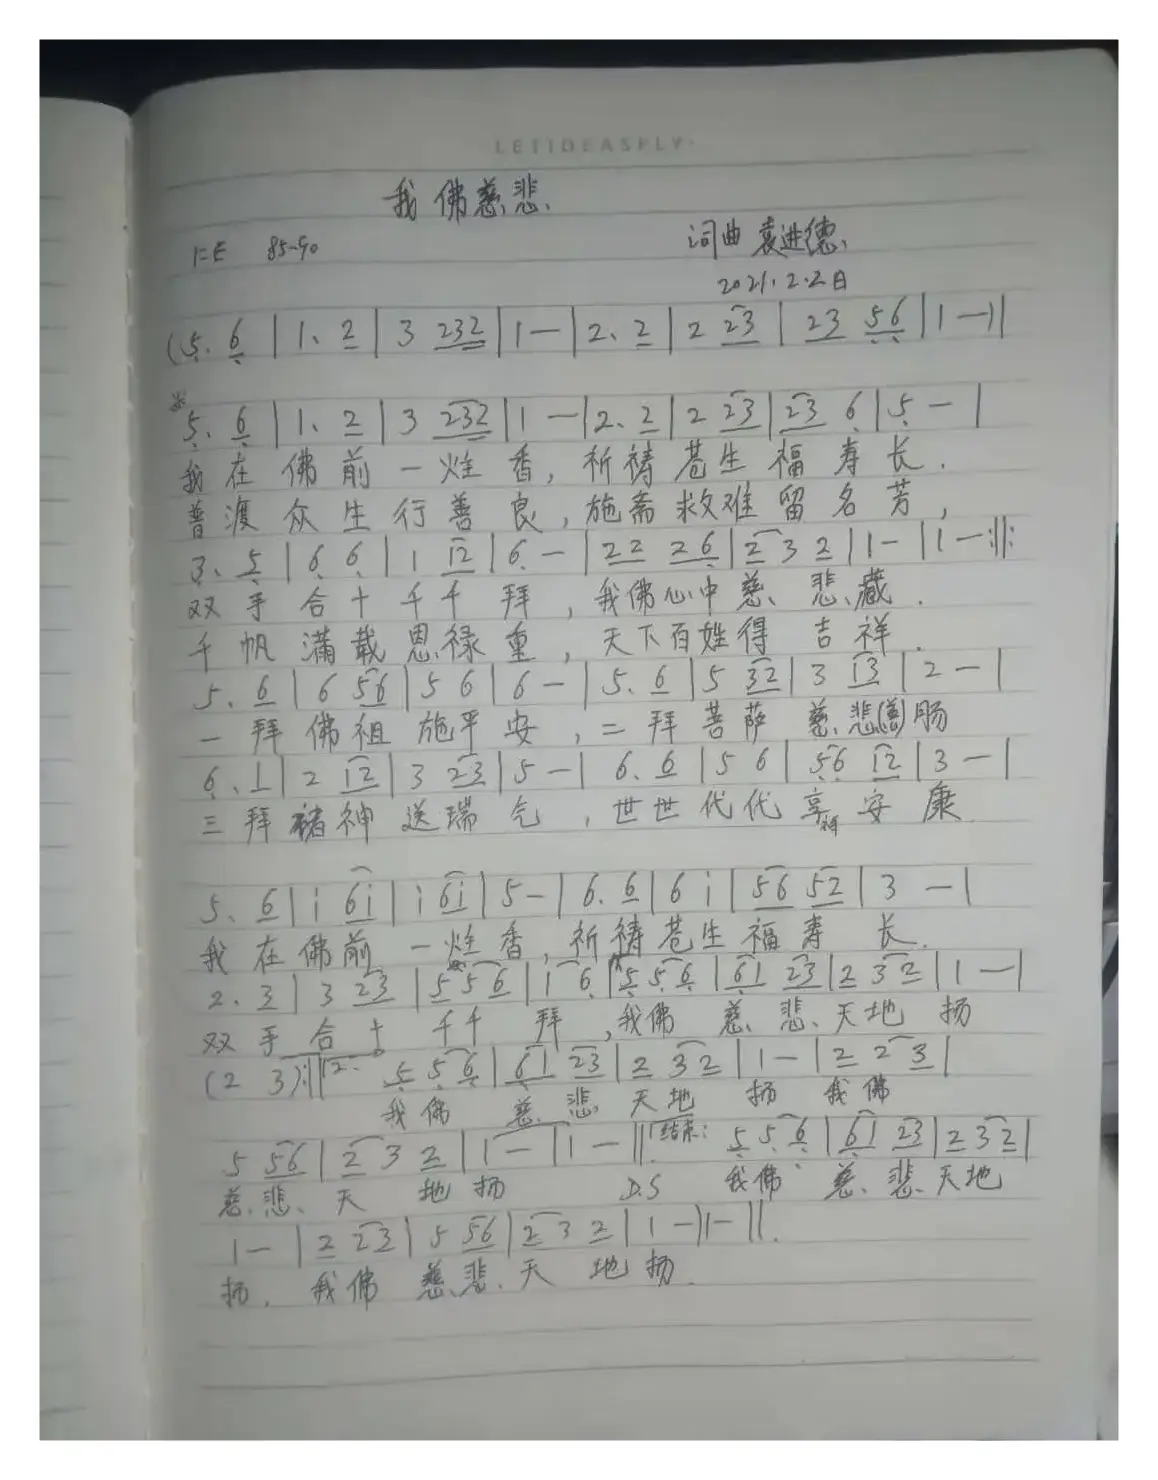 LETIDEASFLY.
我佛慈悲
1=E 85-90 词曲 袁进德
2021.2.2日
(5. 6 | 1. 2 | 3 232 | 1 — | 2. 2 | 2 23 | 23 56 | 1 —) |
5. 6 | 1. 2 | 3 232 | 1 — | 2. 2 | 2 23 | 23 6 | 5 — |
我在佛前一炷香,祈祷苍生福寿长.
普渡众生行善良,施斋救难留名芳,
3. 5 | 6 6 | 1 12 | 6 — | 22 26 | 2 3 2 | 1 — | 1 — :||:
双手合十千千拜,我佛心中慈悲藏.
千帆满载恩禄重,天下百姓得吉祥.
5. 6 | 6 56 | 5 6 | 6 — | 5. 6 | 5 32 | 3 13 | 2 — |
一拜佛祖施平安,二拜菩萨慈悲(善)肠
6. 1 | 2 12 | 3 23 | 5 — | 6. 6 | 5 6 | 56 12 | 3 — |
三拜诸神送瑞气,世世代代享安康
5. 6 | i 6i | i 6i | 5 — | 6. 6 | 6 i | 56 52 | 3 — |
我在佛前一炷香,祈祷苍生福寿长.
2. 3 | 3 23 | 5 5 6 | 1 6 | 5 5 6 | 61 23 | 2 3 2 | 1 — |
双手合十千千拜,我佛慈悲天地扬
(2 3) :|| 2. 5 5 6 | 61 23 | 2 3 2 | 1 — | 2 2 3 |
我佛慈悲天地扬我佛
5 56 | 2 3 2 | 1 — | 1 — || 结束: 5 5 6 | 61 23 | 2 3 2 |
慈悲天地扬 D.S 我佛慈悲天地
1 — | 2 23 | 5 56 | 2 3 2 | 1 — | 1 — ||.
扬.我佛慈悲天地扬.